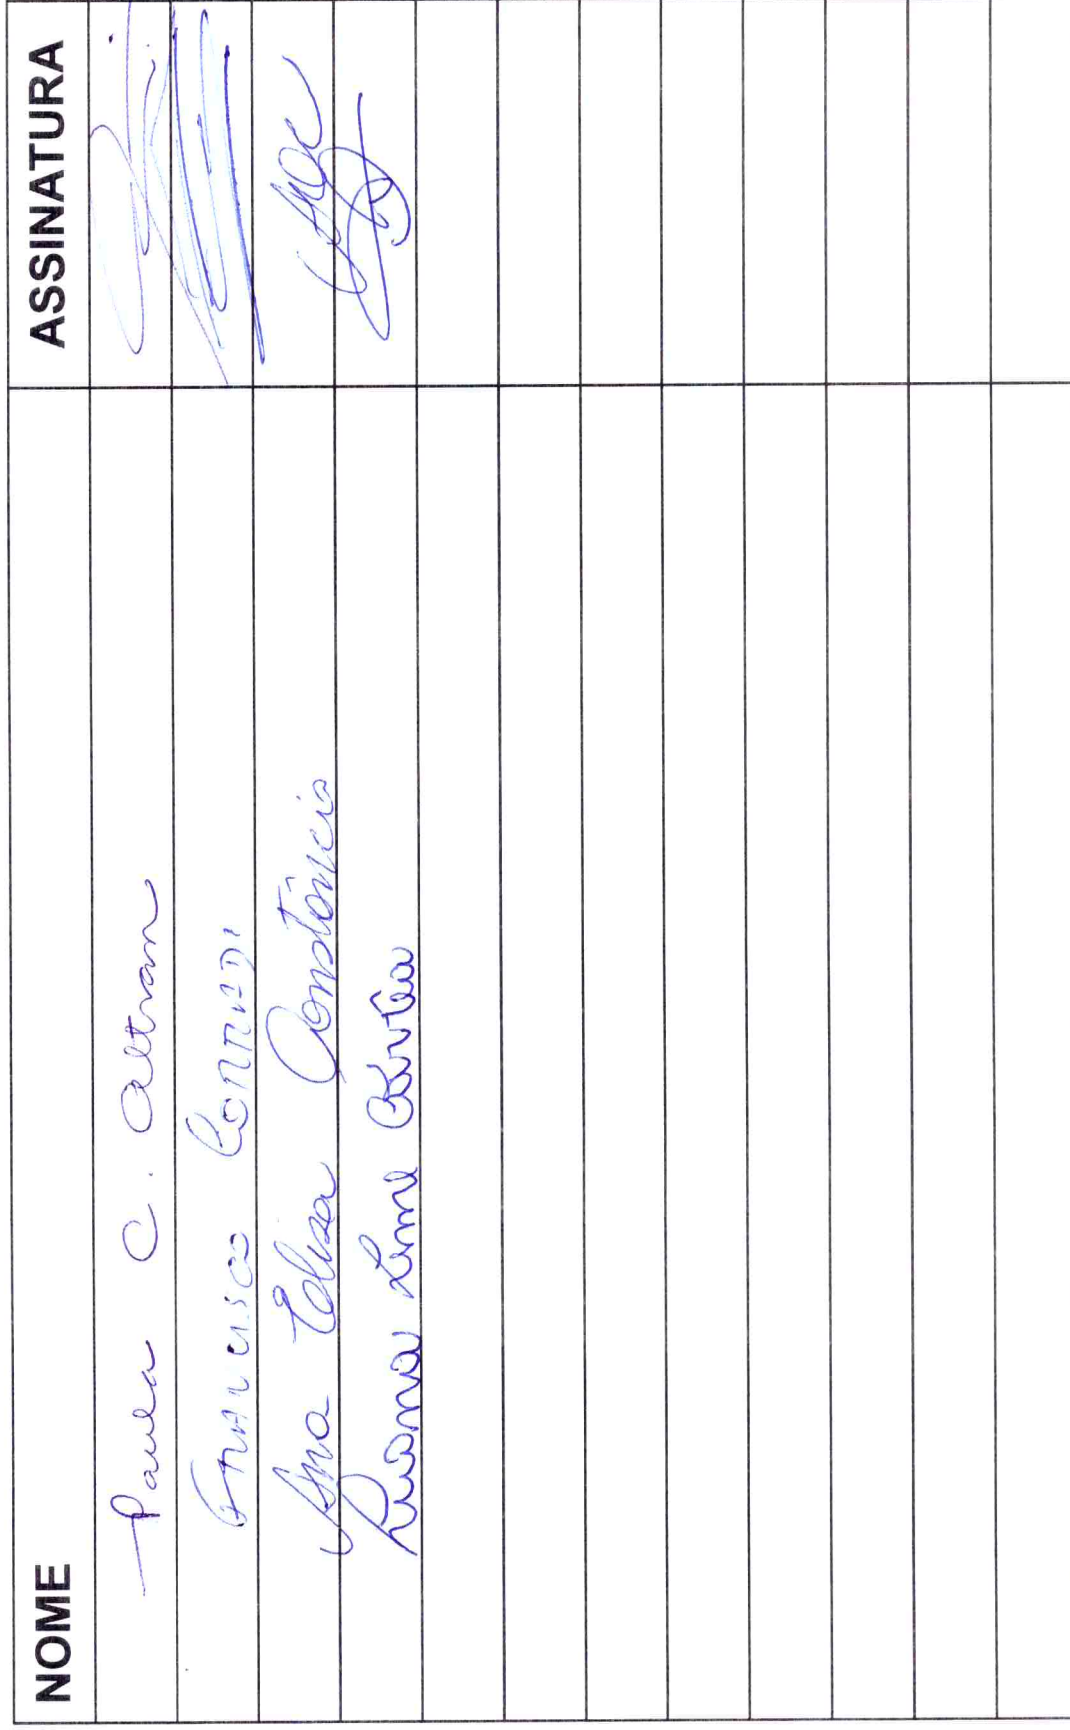 NOME ASSINATURA
Paula C. Altram
Francisco Conradi
Ana Elisa Constâncio
Luana Leme